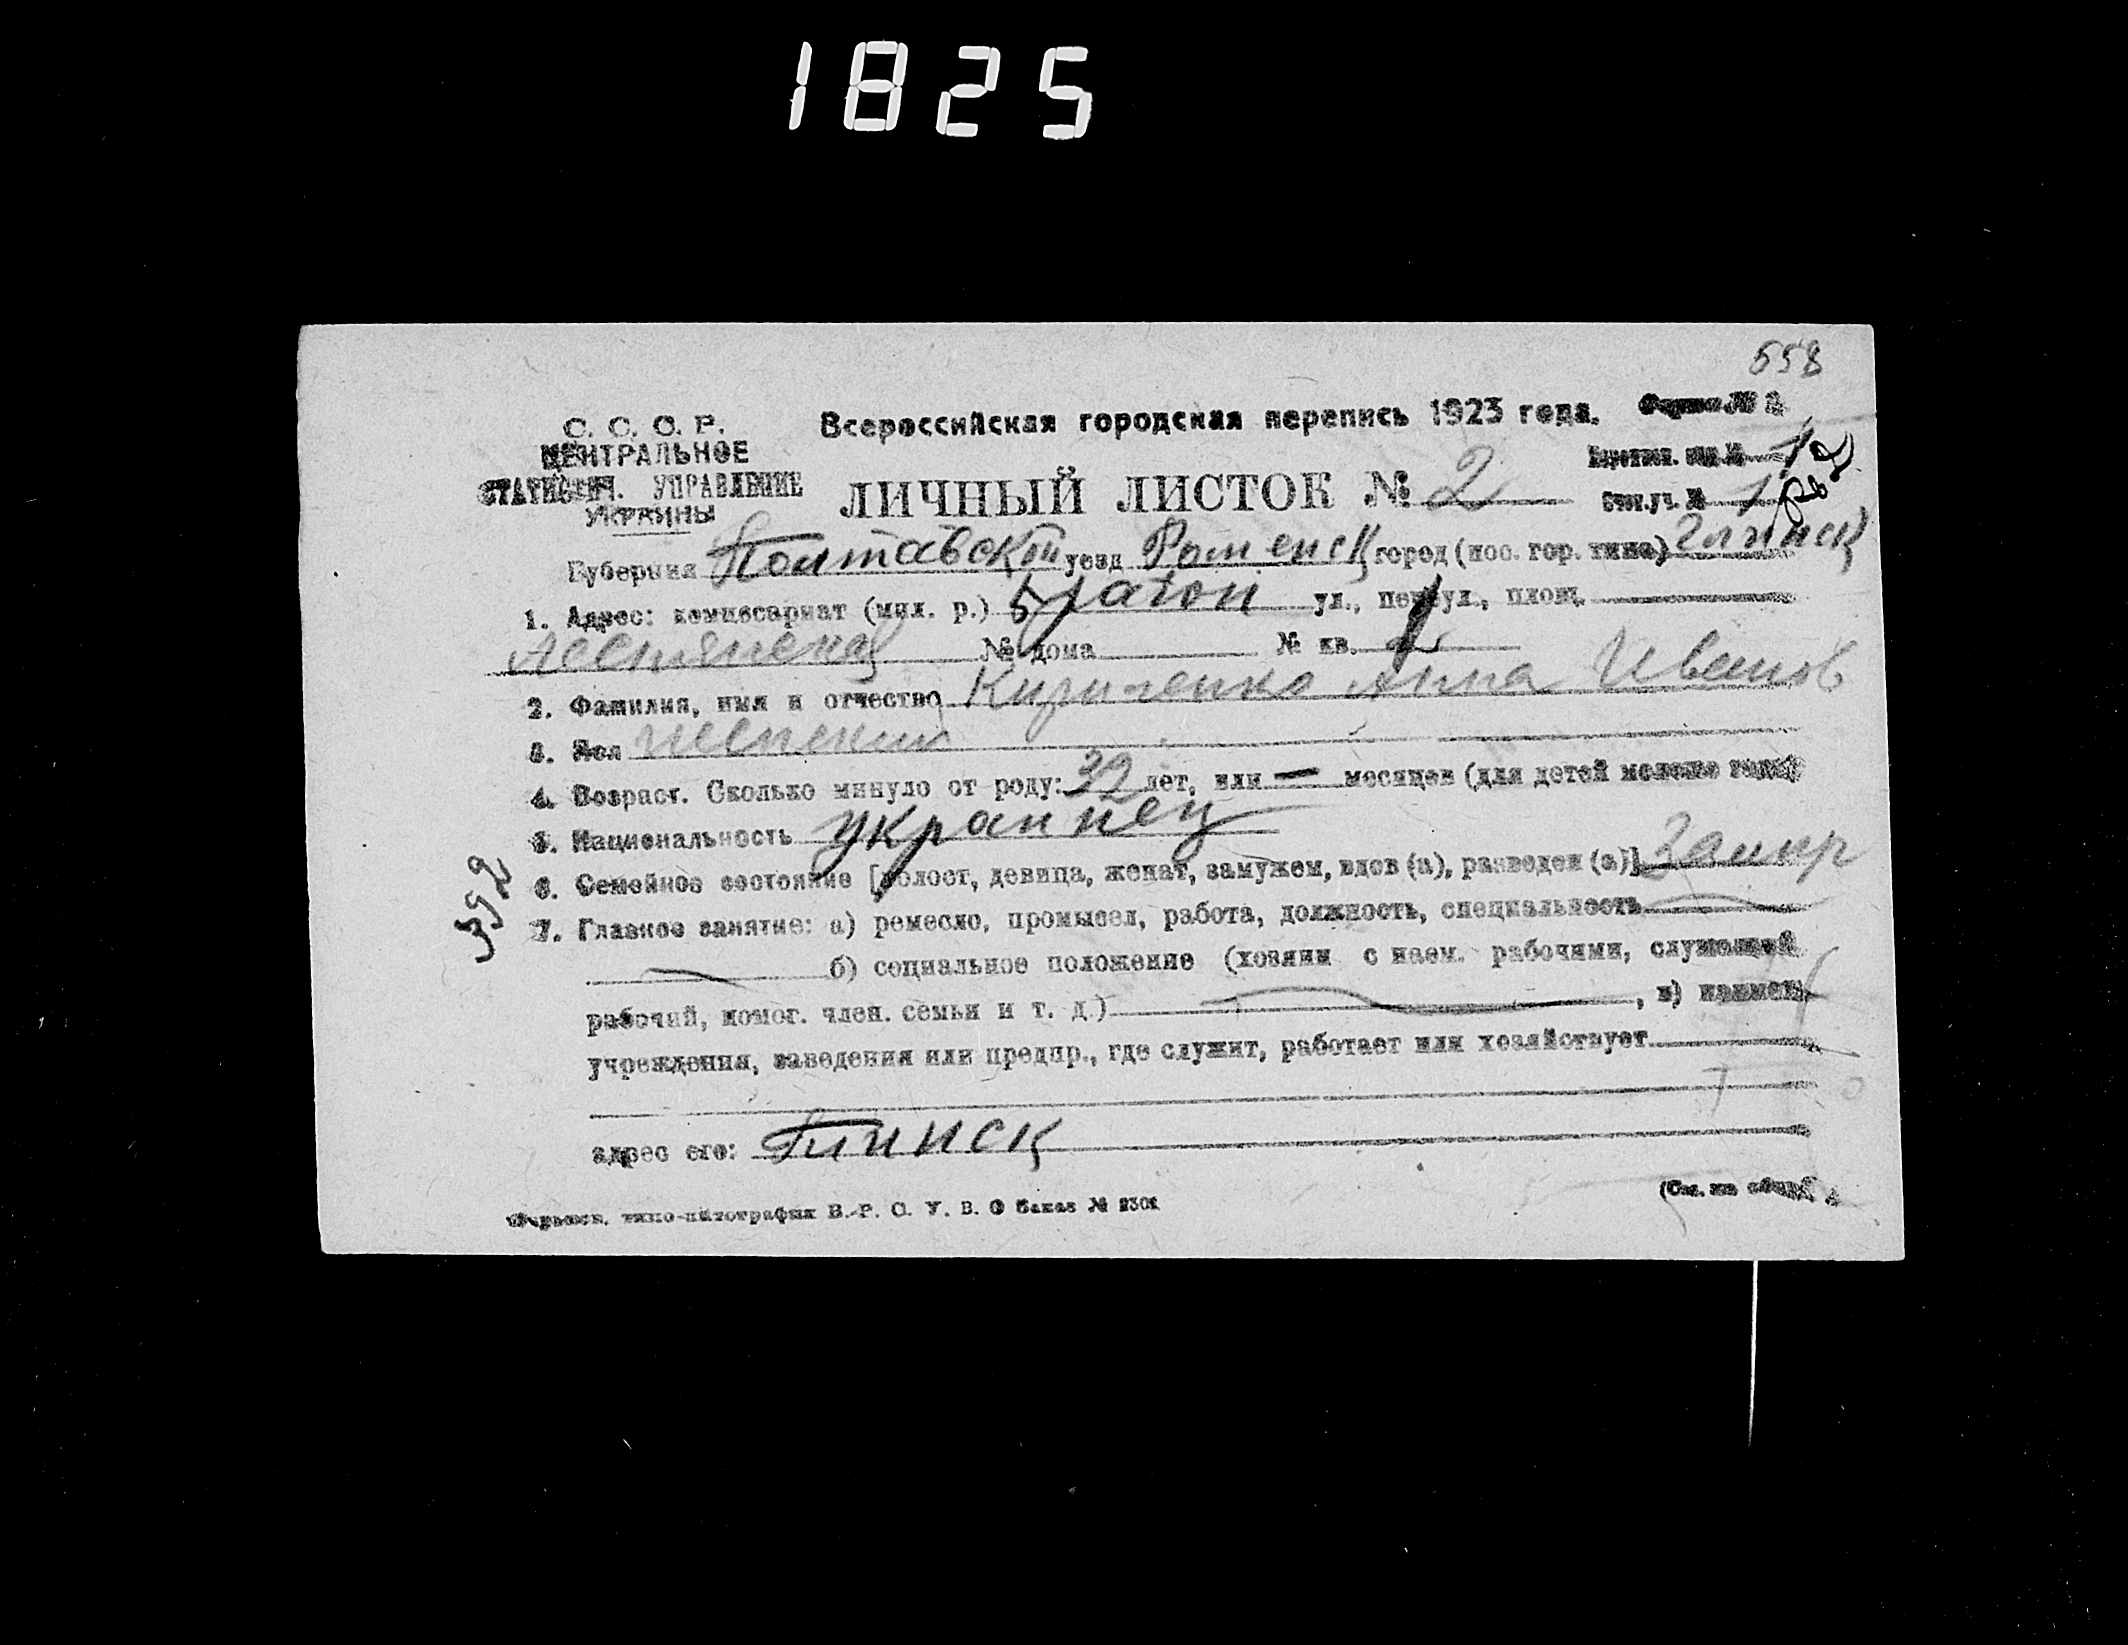 1825
558
С. С. С. Р.
ЦЕНТРАЛЬНОЕ
СТАТИСТИЧ. УПРАВЛЕНИЕ
УКРАИНЫ
Всероссийская городская перепись 1923 года.
Форма № 2
ЛИЧНЫЙ ЛИСТОК № 2
№ 1
Счет. уч. № 1
Губерния Полтавской уезд Роменск город (пос. гор. типа) Глинск
1. Адрес: комиссариат (мил. р.) 5 район ул., переул., площ.
№ дома № кв.
2. Фамилия, имя и отчество Кириченко Анна Иванов
3. Пол женский
4. Возраст. Сколько минуло от роду: 32 лет, или — месяцев (для детей моложе года)
5. Национальность украинец
6. Семейное состояние [холост, девица, женат, замужем, вдов (а), разведен (а)]
392
7. Главное занятие: а) ремесло, промысел, работа, должность, специальность
б) социальное положение (хозяин с наем. рабочими, служащий
рабочий, помог. член. семьи и т. д.) , в) наимен.
учреждения, заведения или предпр., где служит, работает или хозяйствует
адрес его: Глинск
типо-литография В. Р. С. У. В. О Заказ № 2301
(См. на обор.)